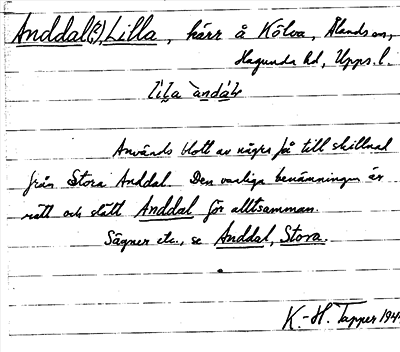 Anddal(?), Lilla, kärr å Kölva, Ålands sn,
Hagunda hd, Upps. l.
lìl̥a `andá̄ɫɛ
Används blott av några få till skillnad
från Stora Anddal. Den vanliga benämningen är
rätt och slätt Anddal för alltsamman.
Sägner etc., se Anddal, Stora.
K.-H. Tapper 194